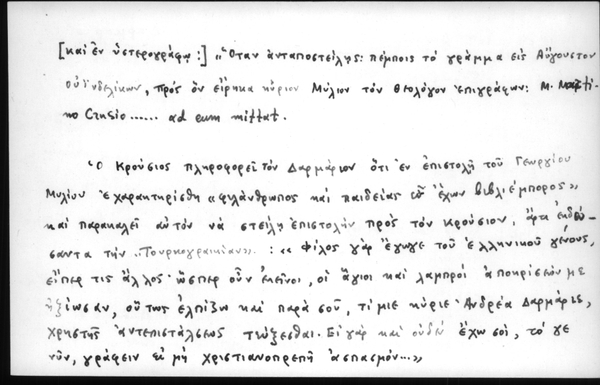 [καὶ ἐν ὑστερογράφῳ:] „Ὅταν ἀνταποστείλῃς: πέμποις τὸ γράμμα εἰς Αὔγουσταν
οὐινδελίκων, πρὸς ὃν εἴρηκα κύριον Μύλιον τὸν θεολόγον ἐπιγράφων: M. Marti-
no Crusio...... ad eum mittat.
Ὁ Κρούσιος πληροφορεῖ τὸν Δαρμάριον ὅτι ἐν ἐπιστολῇ τοῦ Γεωργίου
Μυλίου ἐχαρακτηρίσθη «φιλάνθρωπος καὶ παιδείας εὖ ἔχων βιβλιέμπορος»
καὶ παρακαλεῖ αὐτὸν νὰ στείλῃ ἐπιστολὴν πρὸς τὸν Κρούσιον, ἄρτι ἐκδώ-
σαντα τὴν „Τουρκογραικίαν». : «Φίλος γὰρ ἔγωγε τοῦ ἑλληνικοῦ γένους,
εἴπερ τις ἄλλος· ὥσπερ οὖν ἐκεῖνοι, οἱ ἅγιοι καὶ λαμπροὶ ἀποκρίσεών με
ἠξίωσαν, οὕτως ἐλπίζω καὶ παρὰ σοῦ, τίμιε κύριε Ἀνδρέα Δαρμάριε,
χρηστῆς ἀντεπιστάλσεως τεύξεσθαι. Εἰ γὰρ καὶ οὐδὲν ἔχω σοι, τό γε
νῦν, γράφειν εἰ μὴ χριστιανοπρεπῆ ἀσπασμόν...»